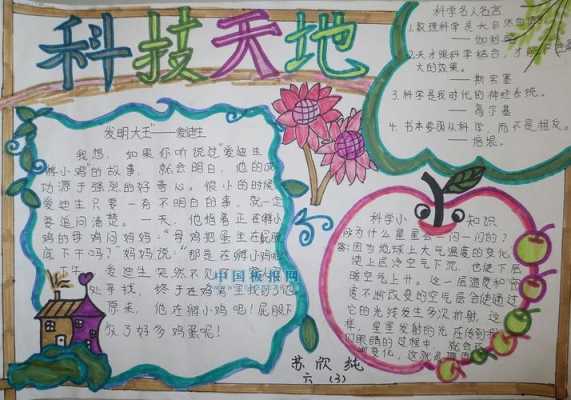 科技天地
发明大王"——爱迪生
我想，如果你听说过"爱迪生
孵小鸡"的故事，就会明白，他的成
功源于强烈的好奇心。很小的时候
爱迪生只要有不明白的事，就一定
要追问清楚。一天，他指着正在孵小
鸡的母鸡问妈妈："母鸡把蛋坐在屁股
底下干吗？"妈妈说："那是在孵小鸡
爱迪生突然不见
处寻找，终于在鸡窝里找到了他
原来，他在孵小鸡呢！屁股下
放了好多鸡蛋呢！
中国板报网
科学名人名言
1.数理科学是大自然
——伽利略
2.天才跟科学结合，才能
大的效果。
——斯宾塞
3.科学是我时代的神经系统。
——高尔基
4.书本要面从科学，而不是相反。
——培根。
科学小知识
为什么星星会一闪一闪的？
答：因为地球上大气温度的变化
使上层冷空气下沉，也使下层
暖空气上升。这一层温度和密
度不断改变的空气层会使通过
它的光线发生多次折射，这
样，星星发射的光在传到
们眼睛的过程中，就会
变化，这就
苏欣纯
六（3）